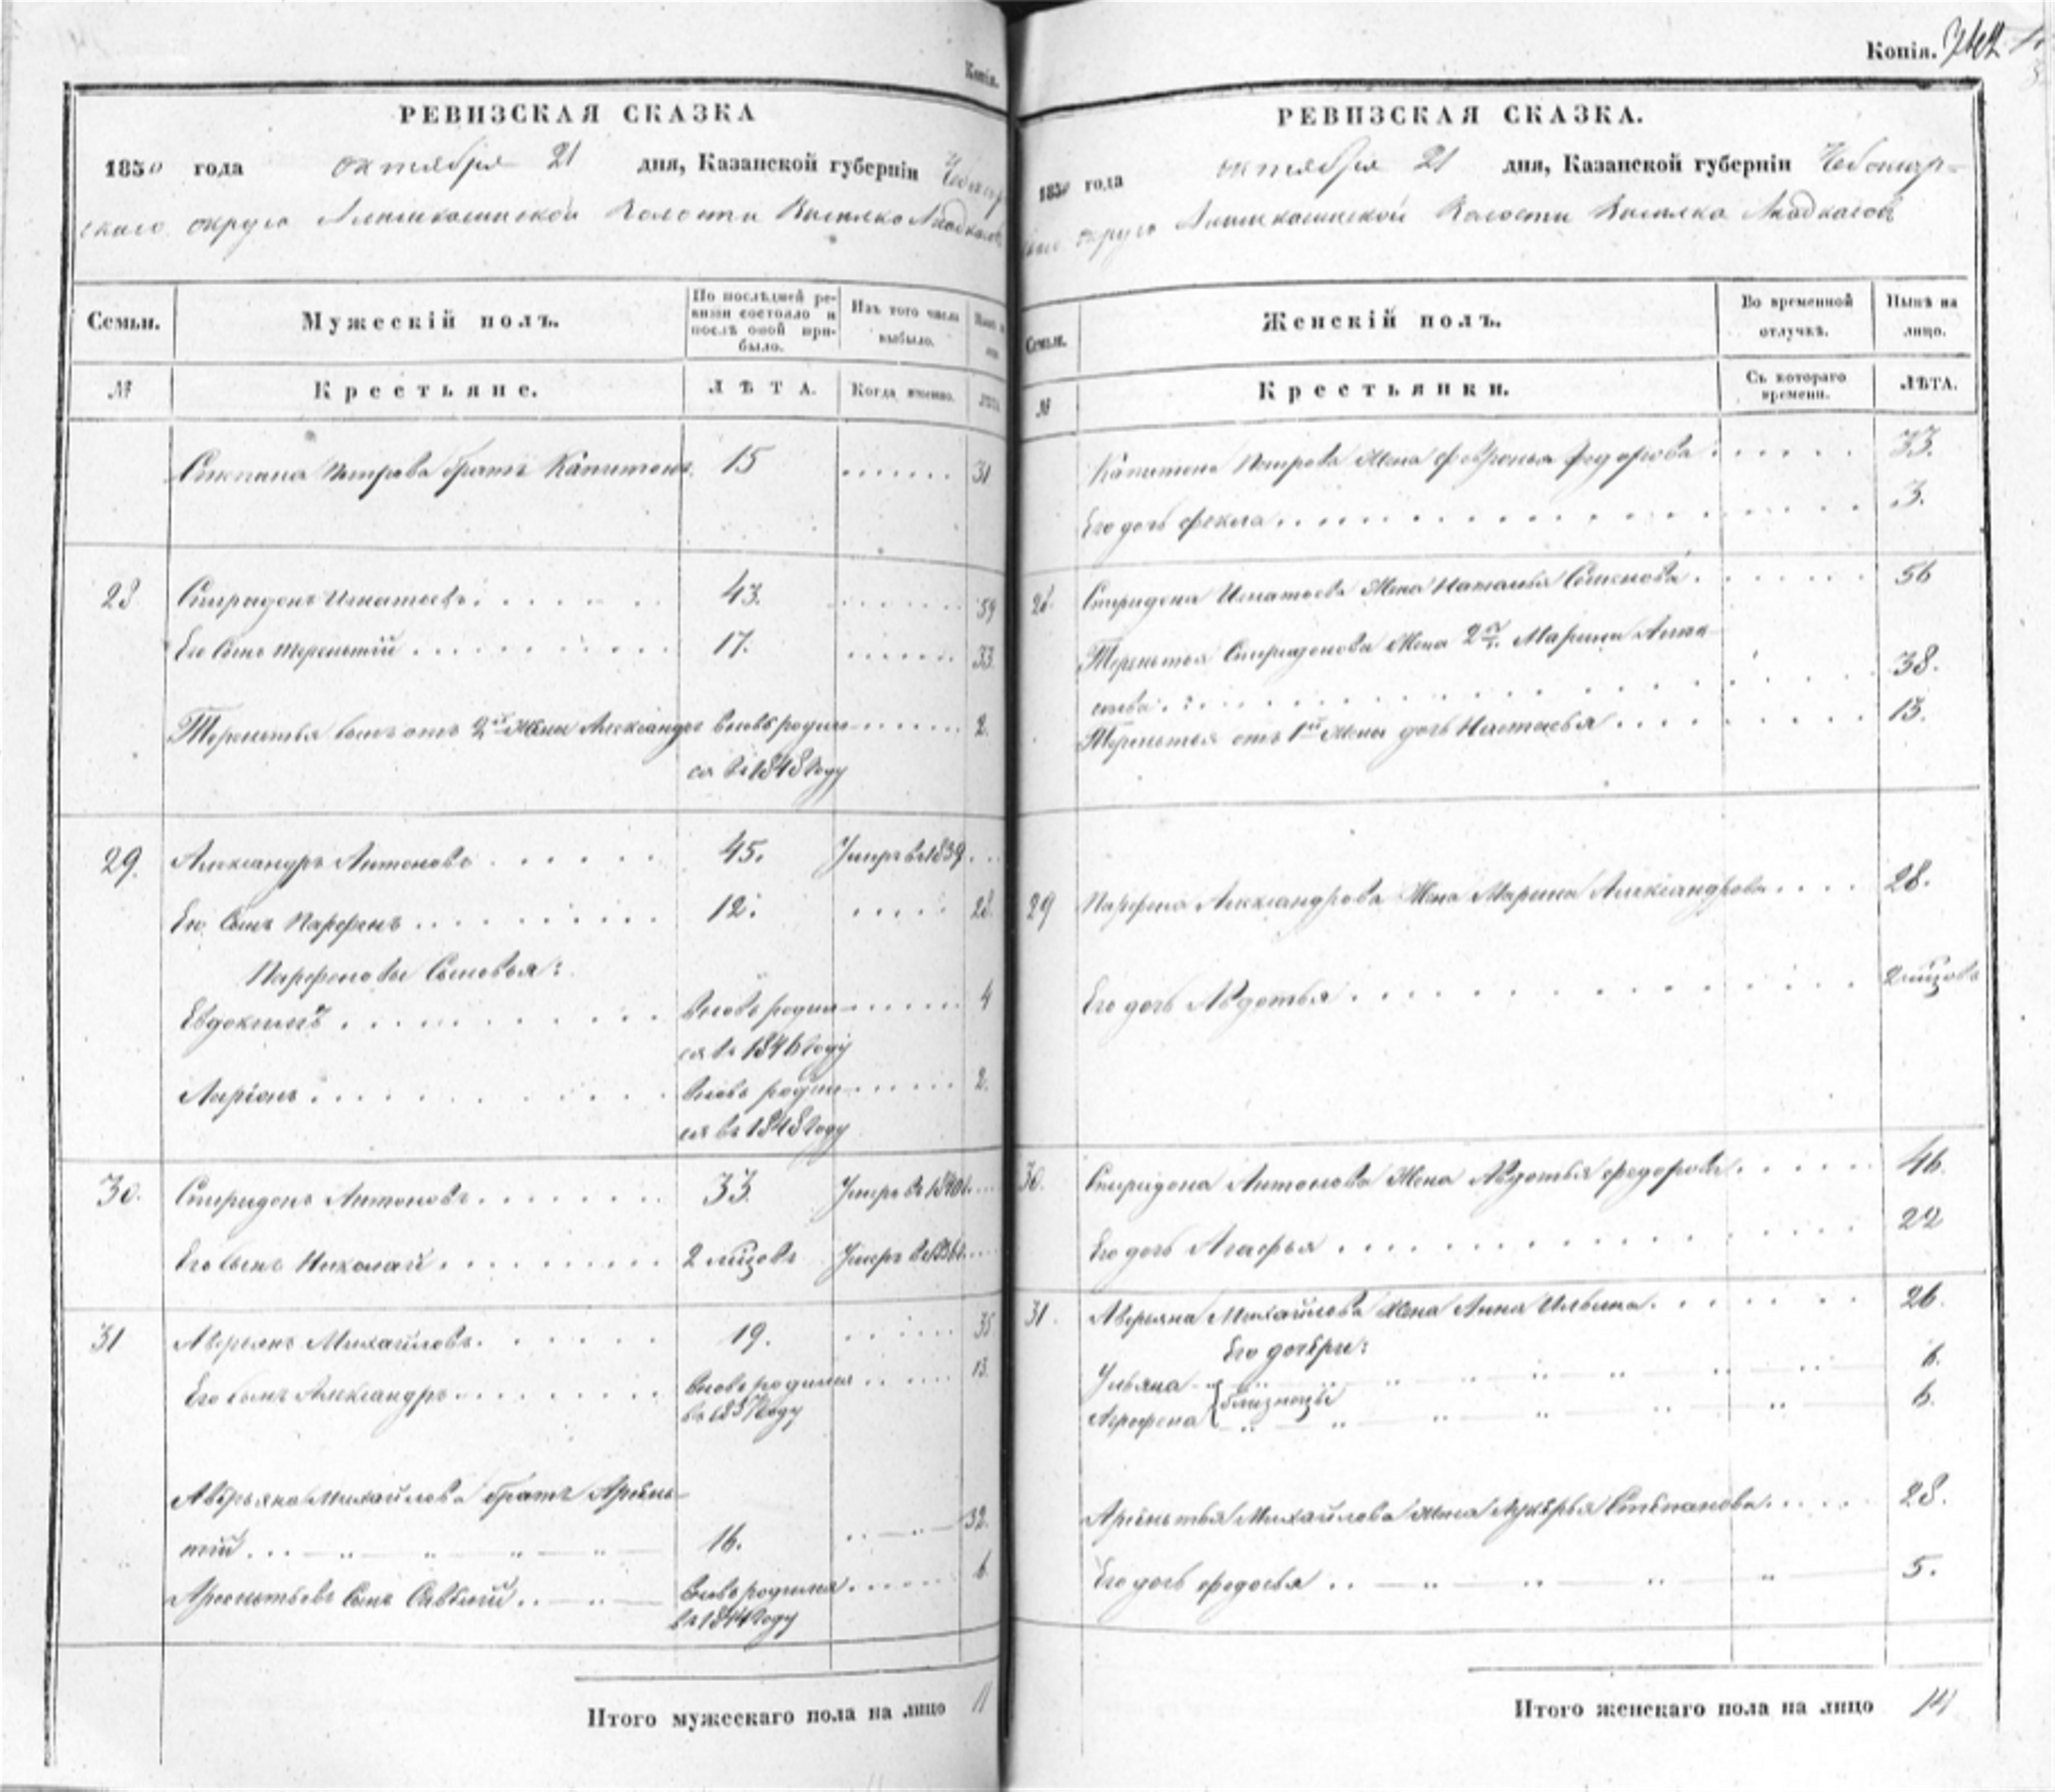 Копія.
РЕВИЗСКАЯ СКАЗКА
1850 года октября 21 дня, Казанской губерніи
округа Волости
Семьи.
Мужескій полъ.
По послѣдней ре-
визіи состояло и
послѣ оной при-
было.
Изъ того числа
выбыло.
№
Крестьяне.
ЛѢТА.
Когда именно.
ЛѢТА
Степана Петрова братъ Капитонъ 15 31
28 Спиридонъ Игнатьевъ 43. 59
Его сынъ Терентій 17. 33
Терентья сынъ отъ 2й жены Александръ вновь родил-
ся въ 1848 году 2.
29. Александръ Антоновъ 45. Умеръ въ 1839
Его сынъ Парфенъ 12. 28.
Парфеновы сыновья:
Евдокимъ вновь родил- 4
ся въ 1846 году
Ларіонъ вновь родил- 2.
ся въ 1848 году
30. Спиридонъ Антоновъ 33. Умеръ въ
Его сынъ Николай 2 Умеръ въ
31 Аверьянъ Михайловъ. 19. 35
Его сынъ Александръ вновь родился 13.
въ 1837 году
Аверьяна Михайлова братъ Арсень-
тій 16. 32.
Арсентьевъ сынъ вновь родился 6
въ 1844 году
Итого мужескаго пола на лицо 11
Копія.
РЕВИЗСКАЯ СКАЗКА.
1850 года октября 21 дня, Казанской губерніи Чебоксар-
округа Волости
Семьи.
Женскій полъ.
Во временной
отлучкѣ.
Нынѣ на
лицо.
№
Крестьянки.
Съ котораго
времени.
ЛѢТА.
Капитона Петрова жена Февронья Федорова 33.
Его дочь Фекла 3.
28. Спиридона Игнатьева жена Наталья Семенова 56
Терентья Спиридонова жена 2я Марина
38.
Терентья отъ 1й жены дочь Настасья 13.
29 Парфена Александрова жена Марина Александрова 28.
Его дочь Авдотья 2
30. Спиридона Антонова жена Авдотья Федорова 46.
Его дочь Агафья 22
31. Аверьяна Михайлова жена Анна Ильина 26.
Его дочери:
Ульяна 6.
близнецы
6.
Арсентья Михайлова жена Лукерья Степанова 28.
Его дочь Федосья 5.
Итого женскаго пола на лицо